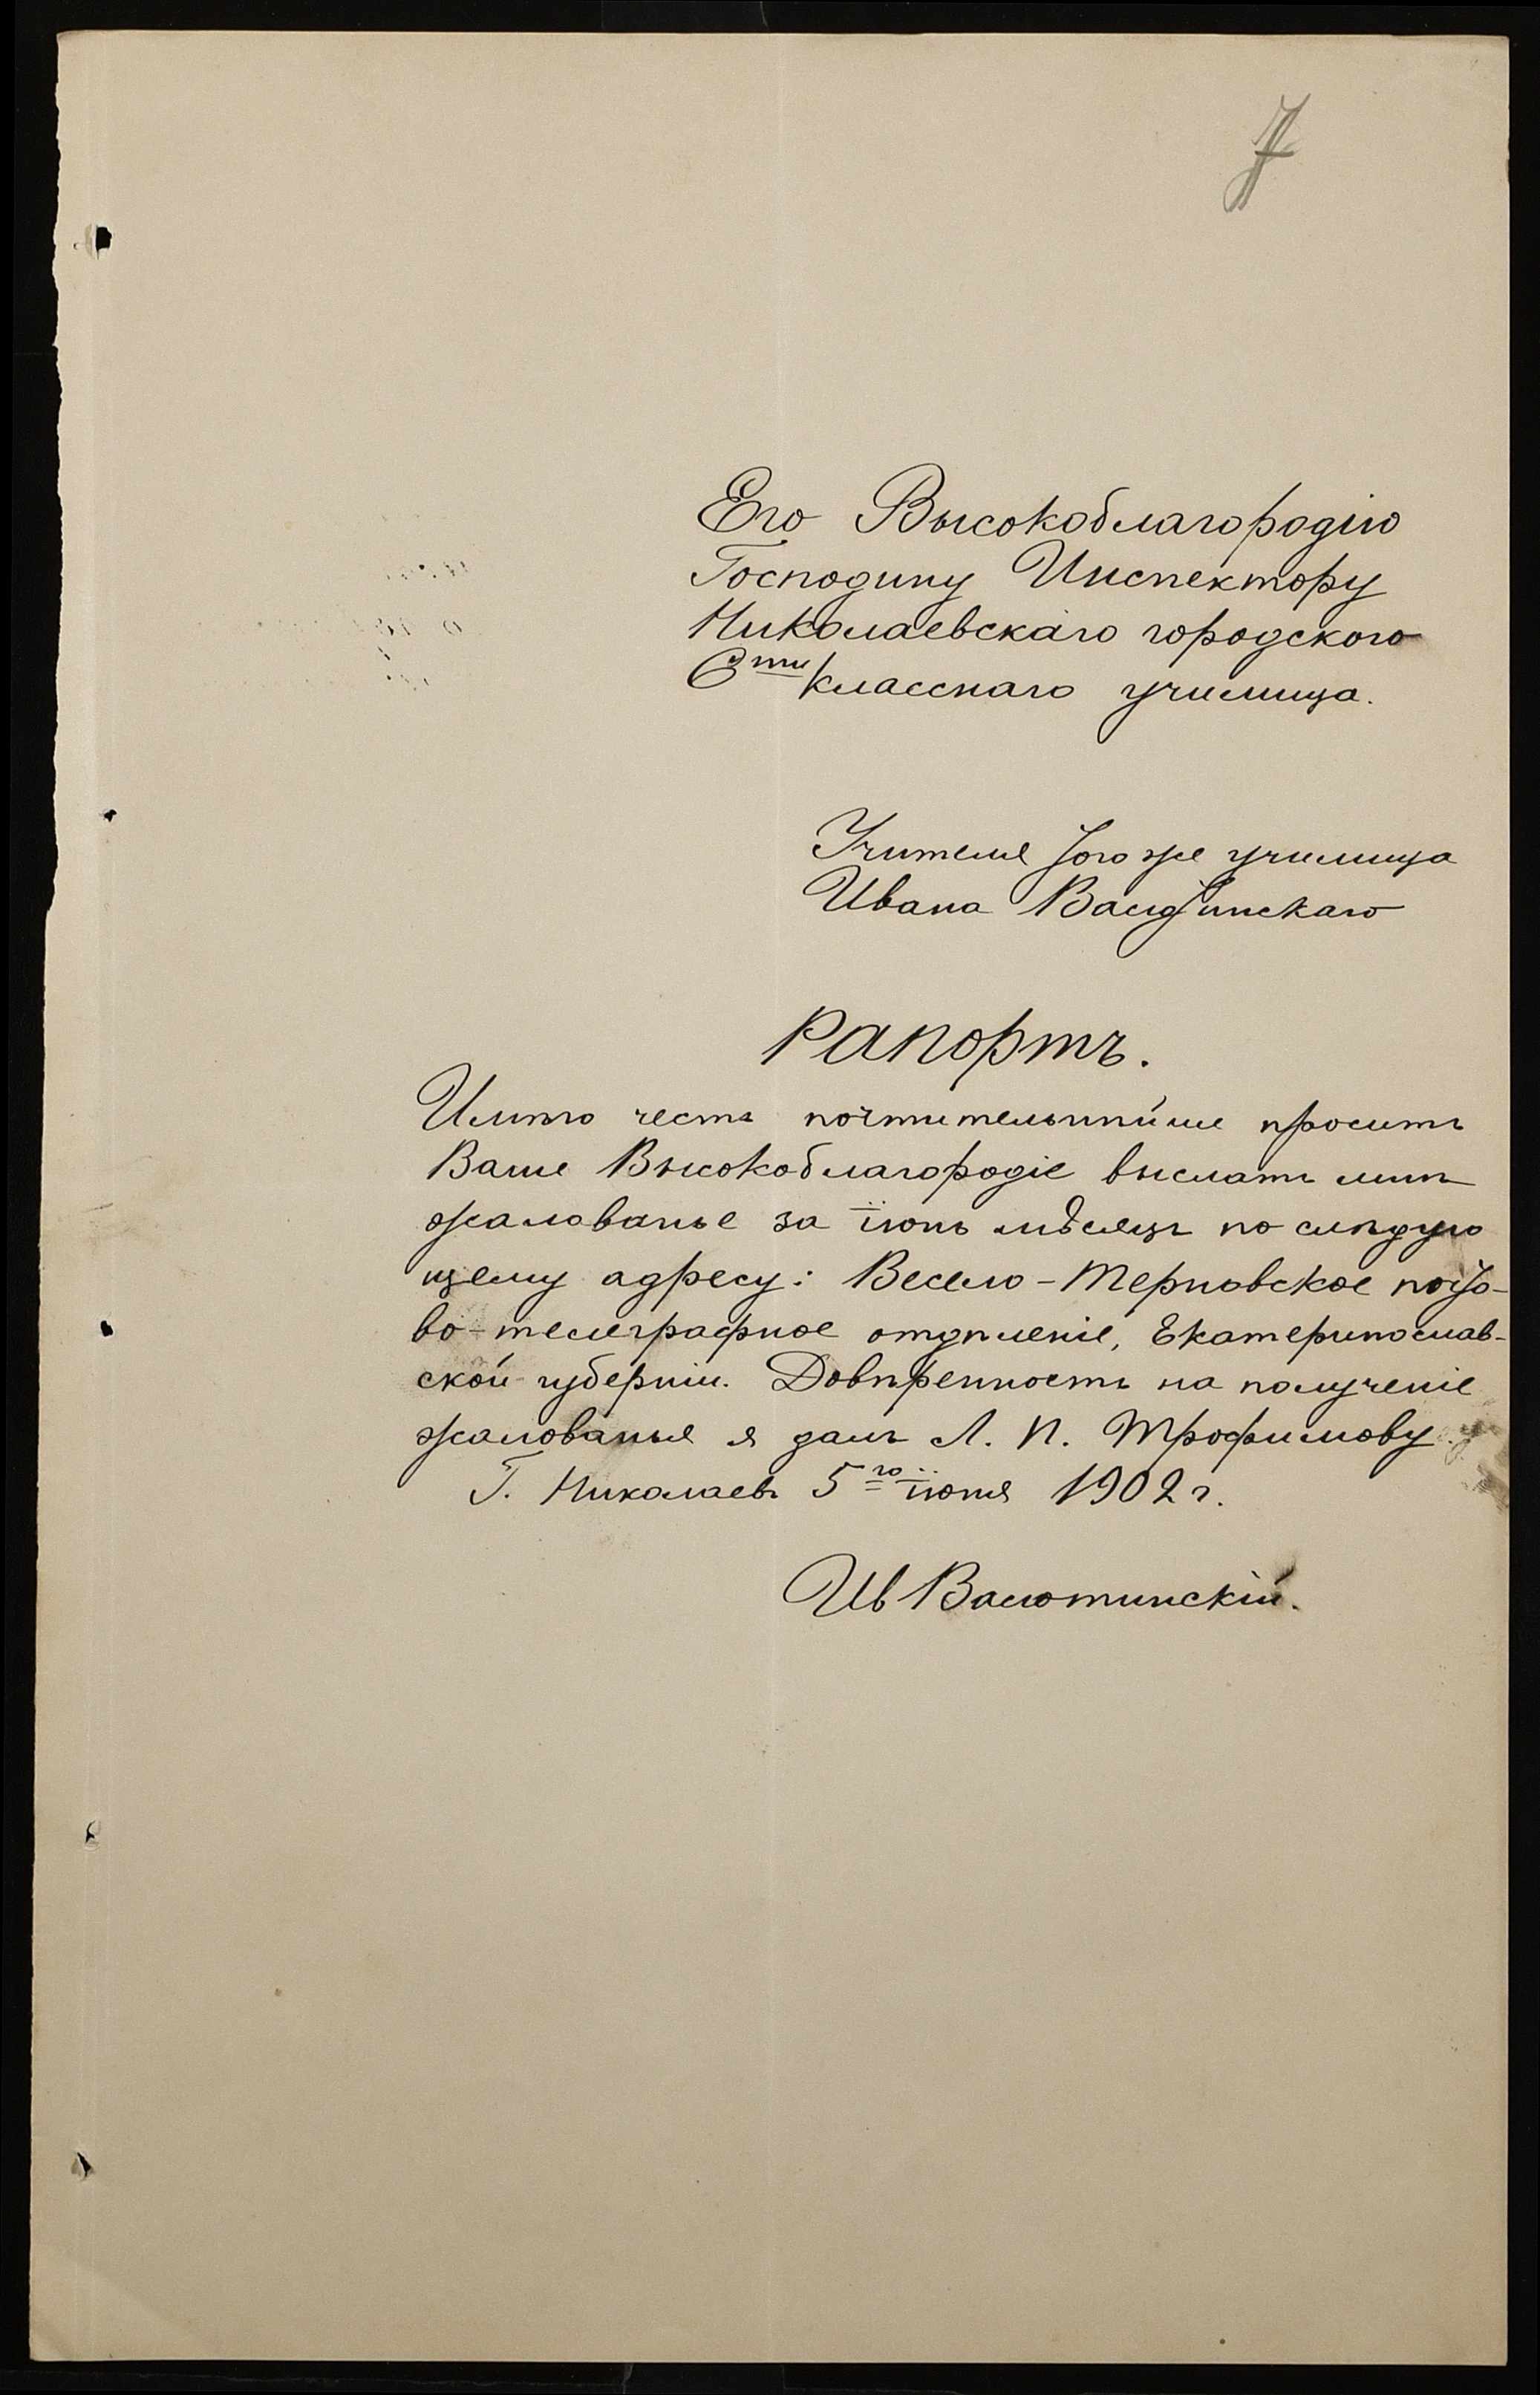 7
Его Высокоблагородію
Господину Инспектору
Николаевскаго городского
6ти классного училища.
Учителя того же училища
Ивана Валютинскаго
Рапортъ.
Имѣю честь почтительнѣйше просить
Ваше Высокоблагородіе выслать мнѣ
жалованье за іюнь мѣсяцъ по слѣдую
щему адресу: Весело-Терновское почто-
во-телеграфное отдѣленіе, Екатеринослав-
ской губерніи. Довѣренность на полученіе
жалованья я далъ Л. П. Трофимову.
Г. Николаевъ 5го іюня 1902 г.
Ив Валютинскій.